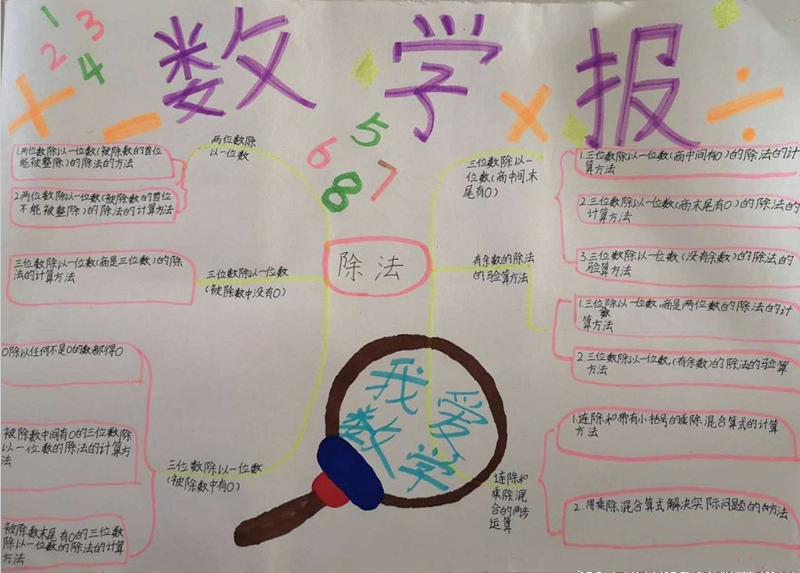 数学报
1
2
3
4
+
-
×
÷
5
6
7
8
除法
两位数除
以一位数
1.两位数除以一位数(被除数的首位
能被整除)的除法的方法
2.两位数除以一位数(被除数的首位
不能被整除)的除法的计算方法
三位数除以一位数
(被除数中没有0)
三位数除以一位数(商是三位数)的除
法的计算方法
三位数除以一位数
(被除数中有0)
0除以任何不是0的数都得0
被除数中间有0的三位数除
以一位数的除法的计算方
法
被除数末尾有0的三位数
除以一位数的除法的计算
方法
三位数除以一
位数(商中间,末
尾有0)
1.三位数除以一位数(商中间有0)的除法的计
算方法
2.三位数除以一位数(商末尾有0)的除法的
计算方法
3.三位数除以一位数(没有余数)的除法的
验算方法
有余数的除法
的验算方法
1.三位除以一位数,商是两位数的除法的计
数
算方法
2.三位数除以一位数,(有余数)的除法的验算
方法
连除和
乘除混
合的两步
运算
1.连除和带有小括号的乘除混合算式的计算
方法
2.用乘除混合算式解决实际问题的方法
我爱
数学